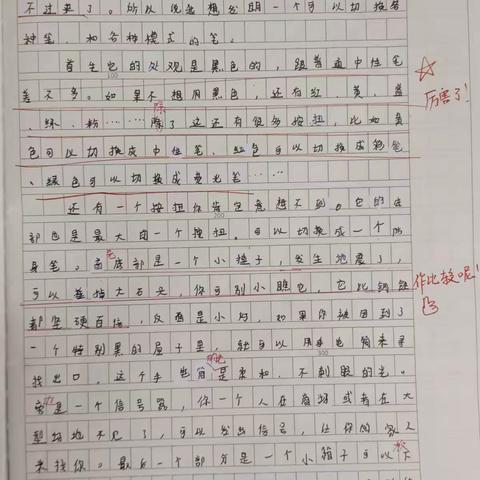 不过来了。所以我想发明一个可以切换各
种笔、和各种模式的笔。
首先它的外观是黑色的，跟普通中性笔
差不多。如果不想用黑色，还有红、黄、蓝
厉害了！
、绿、粉……除了这还有很多按扭，比如黄
色可以切换成中性笔，红色可以切换成彩笔
、绿色可以切换成荧光笔……
还有一个按扭你肯定意想不到。它的底
部也是最大的一个按扭。可以切换成一个防
身笔。底部是一个小锤子，发生地震了，
可以砸大石头，你可别小瞧它，它比钢
作比较呢！
都坚硬百倍，反面是小灯，如果你被困到了
一个特别黑的屋子里，就可以用手电筒来寻
找出口，这个手电筒是柔和、不刺眼的光。
旁边是一个信号器，你一个人在商场或者在大
型场地不见了，可以发出信号，让你的家人
来找你。最后一个部分是一个小箱子可以
100
200
300